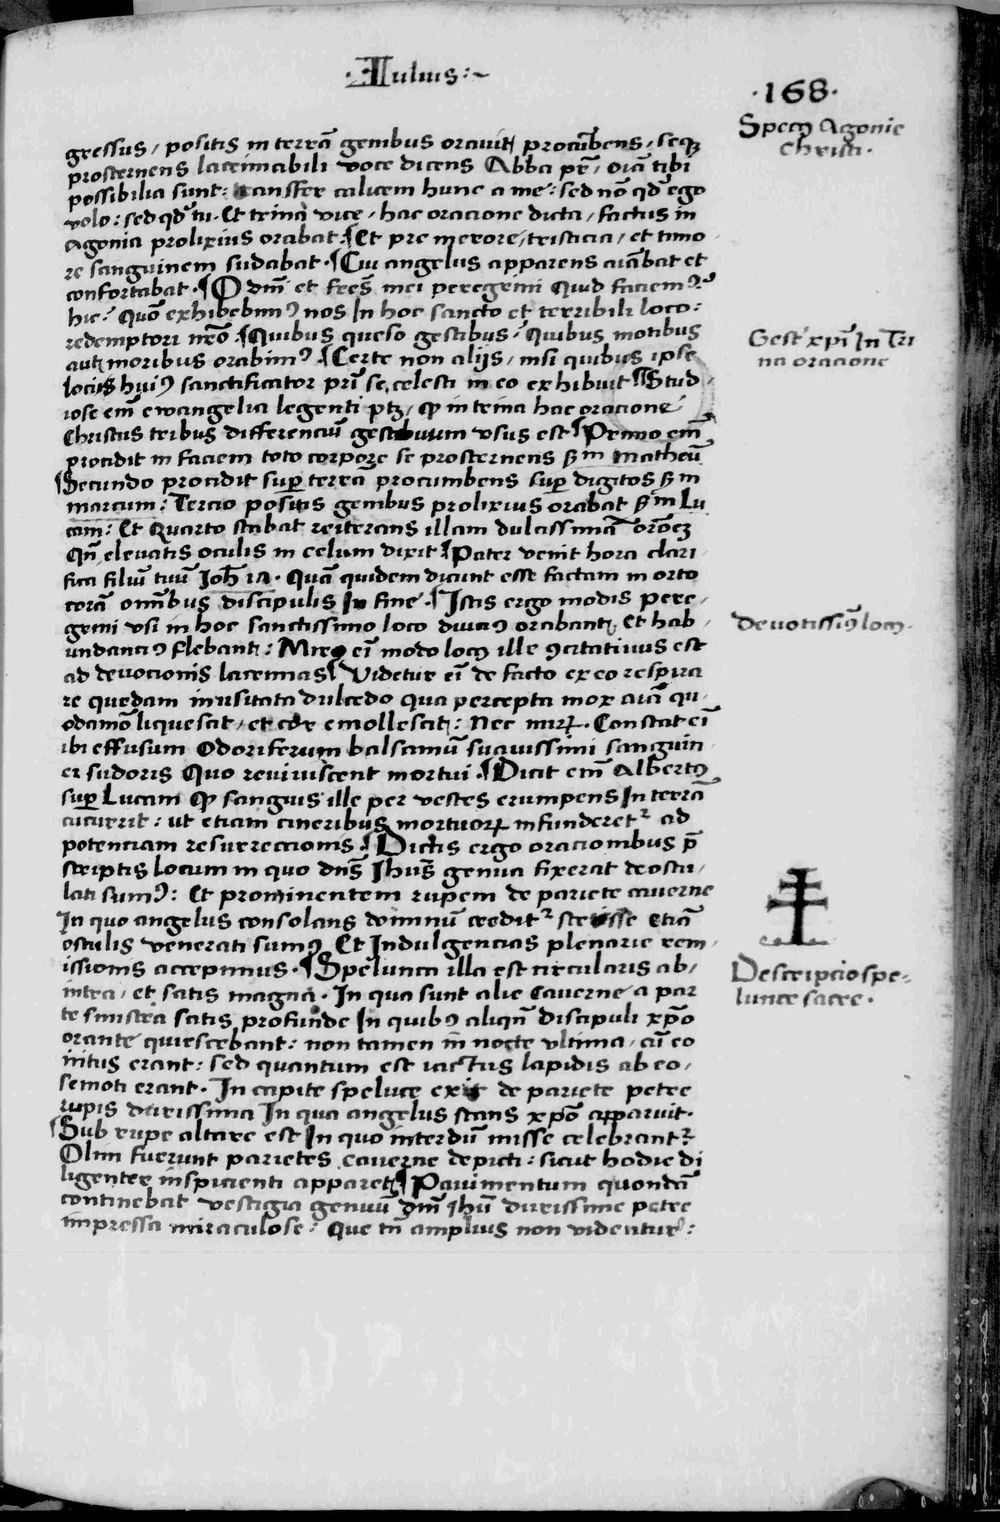 ·Iulius:~
·168·
Specꝯ Agonie
Christi·
gressus, positis in terrā genibus orauit, procūbens, seqꝫ
prosternens lacrimabili voce dicens Abba pr̄, oīa tibi
possibilia sunt: transfer calicem hunc a me: sed nō qd̄ ego
volo: sed qd̄ tu· Et trina vice, hac oracione dicta, factus in
Agonia prolixius orabat· ¶Et pre merore, tristicia, et timo
re sanguinem sudabat· ¶Cui angelus apparens aīabat et
confortabat· ¶O dn̄i et frēs mei peregrini Quid faciemꝰ
hic? Quō exhibebimꝰ nos In hoc sancto et terribili loco:
redemptori nr̄o· ¶Quibus queso gestibus? Quibus motibus
aut moribus orabimꝰ· ¶Certe non alijs, nisi quibus ipse
locus huiꝰ sanctificator pr̄i se celesti in eo exhibuit ¶Stud,
iose em̄ ewangelia legenti ptꝫ, ꝙ in trina hac oracione
Christus tribus differenciū gestibuum vsus est ¶Primo em̄
procidit in faciem toto corpore se prosternens ẜm matheū
¶Secundo procidit suꝑ terrā procumbens suꝑ digitos ẜm
marcum: Tercio positis genibus prolixius orabat ẜm Lu
cam: Et Quarto stabat reiterans illam dulcissimā orōeꝫ
Qn̄ eleuatis oculis in celum dixit ¶Pater venit hora clari,
fica filiū tuū Joh̄ 17· Quā quidem dicunt esse factam in orto
corā omībus discipulis In fine· ¶Istis ergo modis pere,
grini vsi in hoc sanctissimo loco diuciꝰ orabant, Et hab,
undanciꝰ flebant: Miro eī modo locꝯ ille ꝯcitatiuus est
ad deuocionis lacrimas ¶Videtur eī de facto ex eo respira
re quedam inusitata dulcedo qua percepta mox aīa qu,
odāmō liquescat, et cor emollescat: Nec mirꝝ· Constat eī
ibi effusum Odoriferum balsamū suauissimi sanguin,
ei sudoris Quo reuiuiscent mortui· ¶Dicit em̄ Albertꝯ
suꝑ Lucam ꝙ sanguis ille per vestes erumpens In terrā
cucurrit: ut etiam cineribus mortuorꝝ infunderet᷑ ad
potenciam resurrectionis ¶Dictis ergo oracionibus p̄
scriptis Locum in quo dn̄s Jhūs genua fixerat deoscu,
lati sumꝰ: Et prominentem rupem de pariete cauerne
In quo angelus consolans dominū credit᷑ stetisse Etiā
osculis venerati sumꝯ Et Indulgencias plenarie rem,
issionis accepimus· ¶Spelunca illa est circularis ab,
intra, et satis magna· In qua sunt alie Cauerne a par
te sinistra satis profunde In quibꝰ aliqn̄ discipuli xp̄o
orante quiescebant: non tamen in nocte vltima, cū eo
intus erant: sed quantum est iactus lapidis ab eo,
semoti erant· In capite speluce exit de pariete petre
rupis durissima In qua angelus stans xp̄o apparuit·
¶Sub rupe altare est In quo interdū misse celebrant᷑
Olim fuerunt parietes cauerne depicti: sicut hodie di
ligenter inspicienti apparet ¶Pauimentum quondā
continebat vestigia genuū dn̄i Jhū durissime petre
impressa miraculose: Que tn̄ amplius non videntur:
Gest᷑ xp̄i In Tri
na oracione
Deuotissiꝰ locꝯ·
Descripcio spe-
lunce sacre·